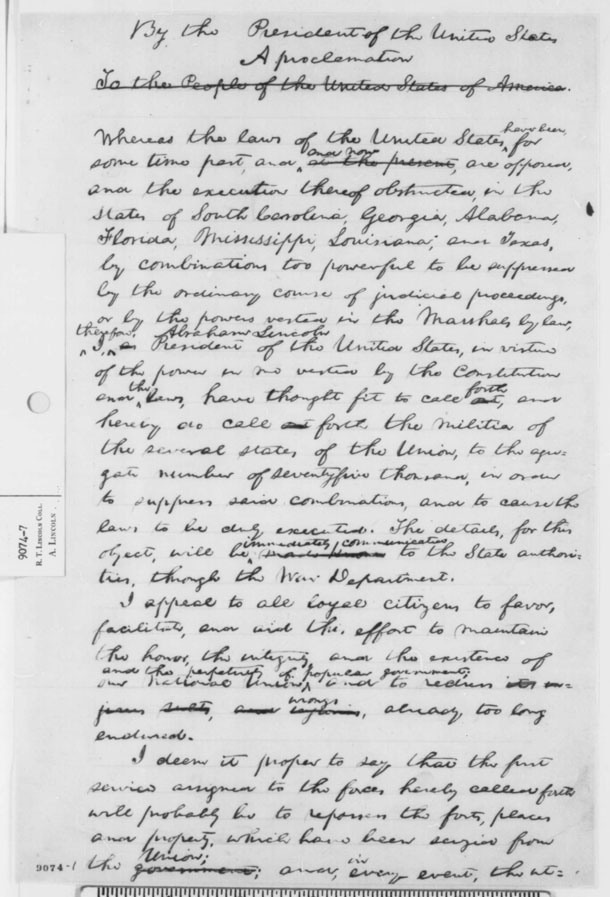 By the President of the United States
A proclamation
To the People of the United States of America.
Whereas the laws of the United States, have been, for
some time past, and and now at the present, are opposed,
and the execution thereof obstructed, in the
States of South Carolina, Georgia, Alabama,
Florida, Mississippi, Louisiana, and Texas,
by combinations too powerful to be suppressed
by the ordinary course of judicial proceedings,
or by the powers vested in the Marshals by law,
therefore, Abraham Lincoln
I, as President of the United States, in virtue
of the power in me vested by the Constitution
and the laws, have thought fit to call forth, and
hereby do call forth the militia of
the several states of the Union, to the aggre-
gate number of seventyfive thousand, in order
to suppress said combinations, and to cause the
laws to be duly executed. The details, for this
immediately communicated
object, will be made known to the State authori-
ties, through the War Department.
I appeal to all loyal citizens to favor,
facilitate, and aid this effort to maintain
the honor, the integrity, and the existence of
and the perpetuity of popular government;
our national Union, and to redress
wrongs
already too long
endured.
I deem it proper to say that the first
service assigned to the forces hereby called forth
will probably be to repossess the forts, places
and property, which have been seized from
Union;
the government; and, in every event, the ut=
9074-1
9074-7
R. T. LINCOLN COLL.
A. LINCOLN